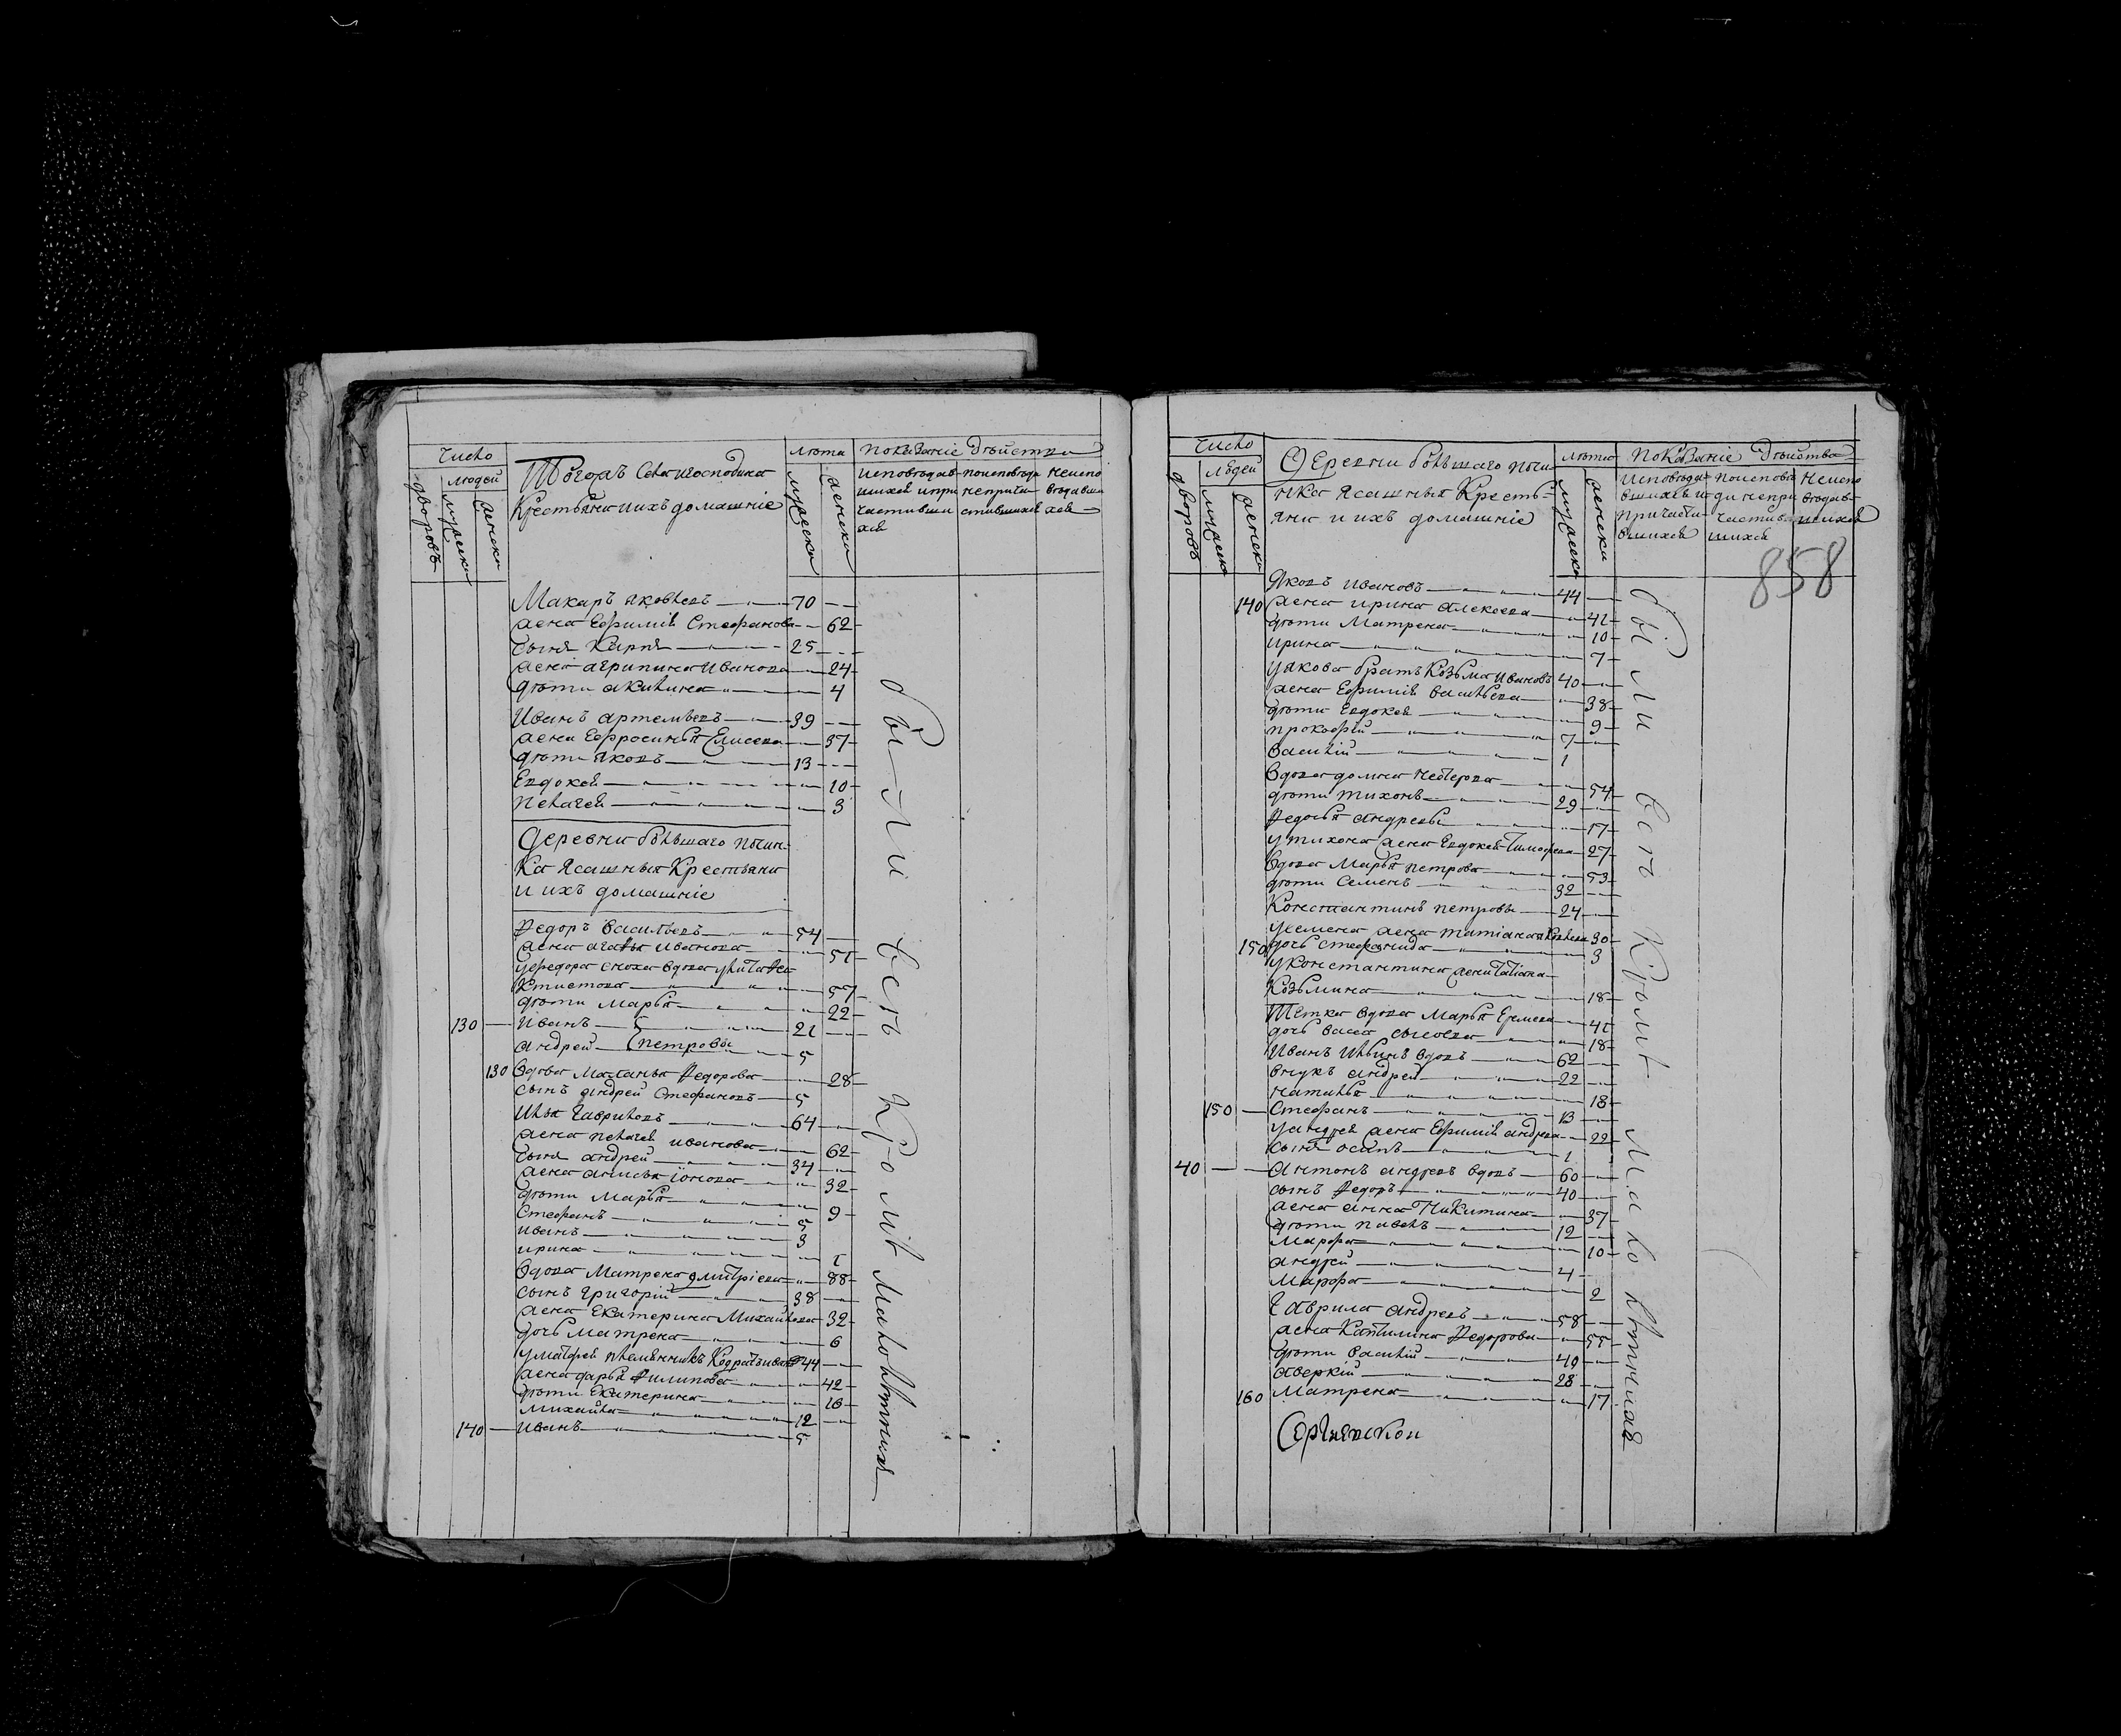 Число
людей
дворовъ
мужеска
женска
Тогожъ Села игосподина
Крестьяня иихъ домашніе
лѣта
мужеска
женска
показаніе дѣйства
исповѣдав- поисповѣди неиспо
шихся ипри неприча- вѣдавши
частивши стившихся хся
хся
Макаръ яковлевъ 70
жена Ефимія Стефанова 62
Сынъ Карпъ 25
жена агрипина Иванова 24
дѣти акилина 4
Иванъ артемьевъ 39
жена Ефросинья Елисеева 37
дѣти яковъ 13
Евдокея 10
пелагея 3
Деревни болшаго почин-
ка ясашныя Крестьяня
и ихъ домашніе
Федоръ Васильевъ 54
жена агафья иванова 51
уфедора сноха вдова
57
дѣти марья 22
130 Иванъ 21
андрей петровы 5
130 вдова маланья Федорова 28
сынъ андрей Стефановъ 5
Илья Гавриловъ 64
жена пелагея иванова 62
сынъ андрей 34
жена анисья іонова 32
дѣти марья 9
Стефанъ 5
иванъ 3
ирина 1
вдова матрена дмитріева 88
сынъ григорій 38
жена Екатерина михайлова 32
дочь матрена 6
племянникъ 44
жена дарья Филипова 42
дѣти Екатерина 16
михайла 12
140 иванъ 5
были всѣ кромѣ малолѣтныхъ
Число
людей
дворовъ
мужеска
женска
Деревни болшаго почи-
нка ясашныя Кресть-
яня и ихъ домашніе
лѣта
мужеска
женска
показаніе дѣйства
исповѣда- поисповѣ- неиспо
вшихся и ди непри- вѣдав-
причасти- частив- шихся
вшихся шихся
858
яковъ ивановъ 44
140 жена ирина алексеева 41
дѣти матрена 10
ирина 7
уякова братъ Козьма ивановъ 40
жена Ефимія васильева 38
дѣти Евдокея 9
прокофій 7
василій 1
вдова домна 54
дѣти тихонъ 29
Федосья андреевы 17
утихона жена Евдокея тимофеева 27
вдова марья петрова 53
дѣти Семенъ 32
Констянтинъ петровы 24
усемена жена татіана 30
150 дочь стефанида 3
уконстантина жена татіана
Козьмина 18
тетка вдова марья Еремеева 41
дочь васа 18
Иванъ Ильинъ вдовъ 62
внукъ андрей 22
наталья 18
150 Стефанъ 13
уандрея жена Ефимія андреева 22
сынъ осипъ 1
40 антонъ андреевъ вдовъ 60
сынъ Федоръ 40
жена анна никитина 37
дѣти павелъ 12
марфа 10
андрей 4
марфа 2
Гаврила андреевъ 58
жена Катилина Федорова 55
дѣти василій 40
аверкій 28
160 матрена 17
Сергиевской
были всѣ кромѣ малолѣтныхъ